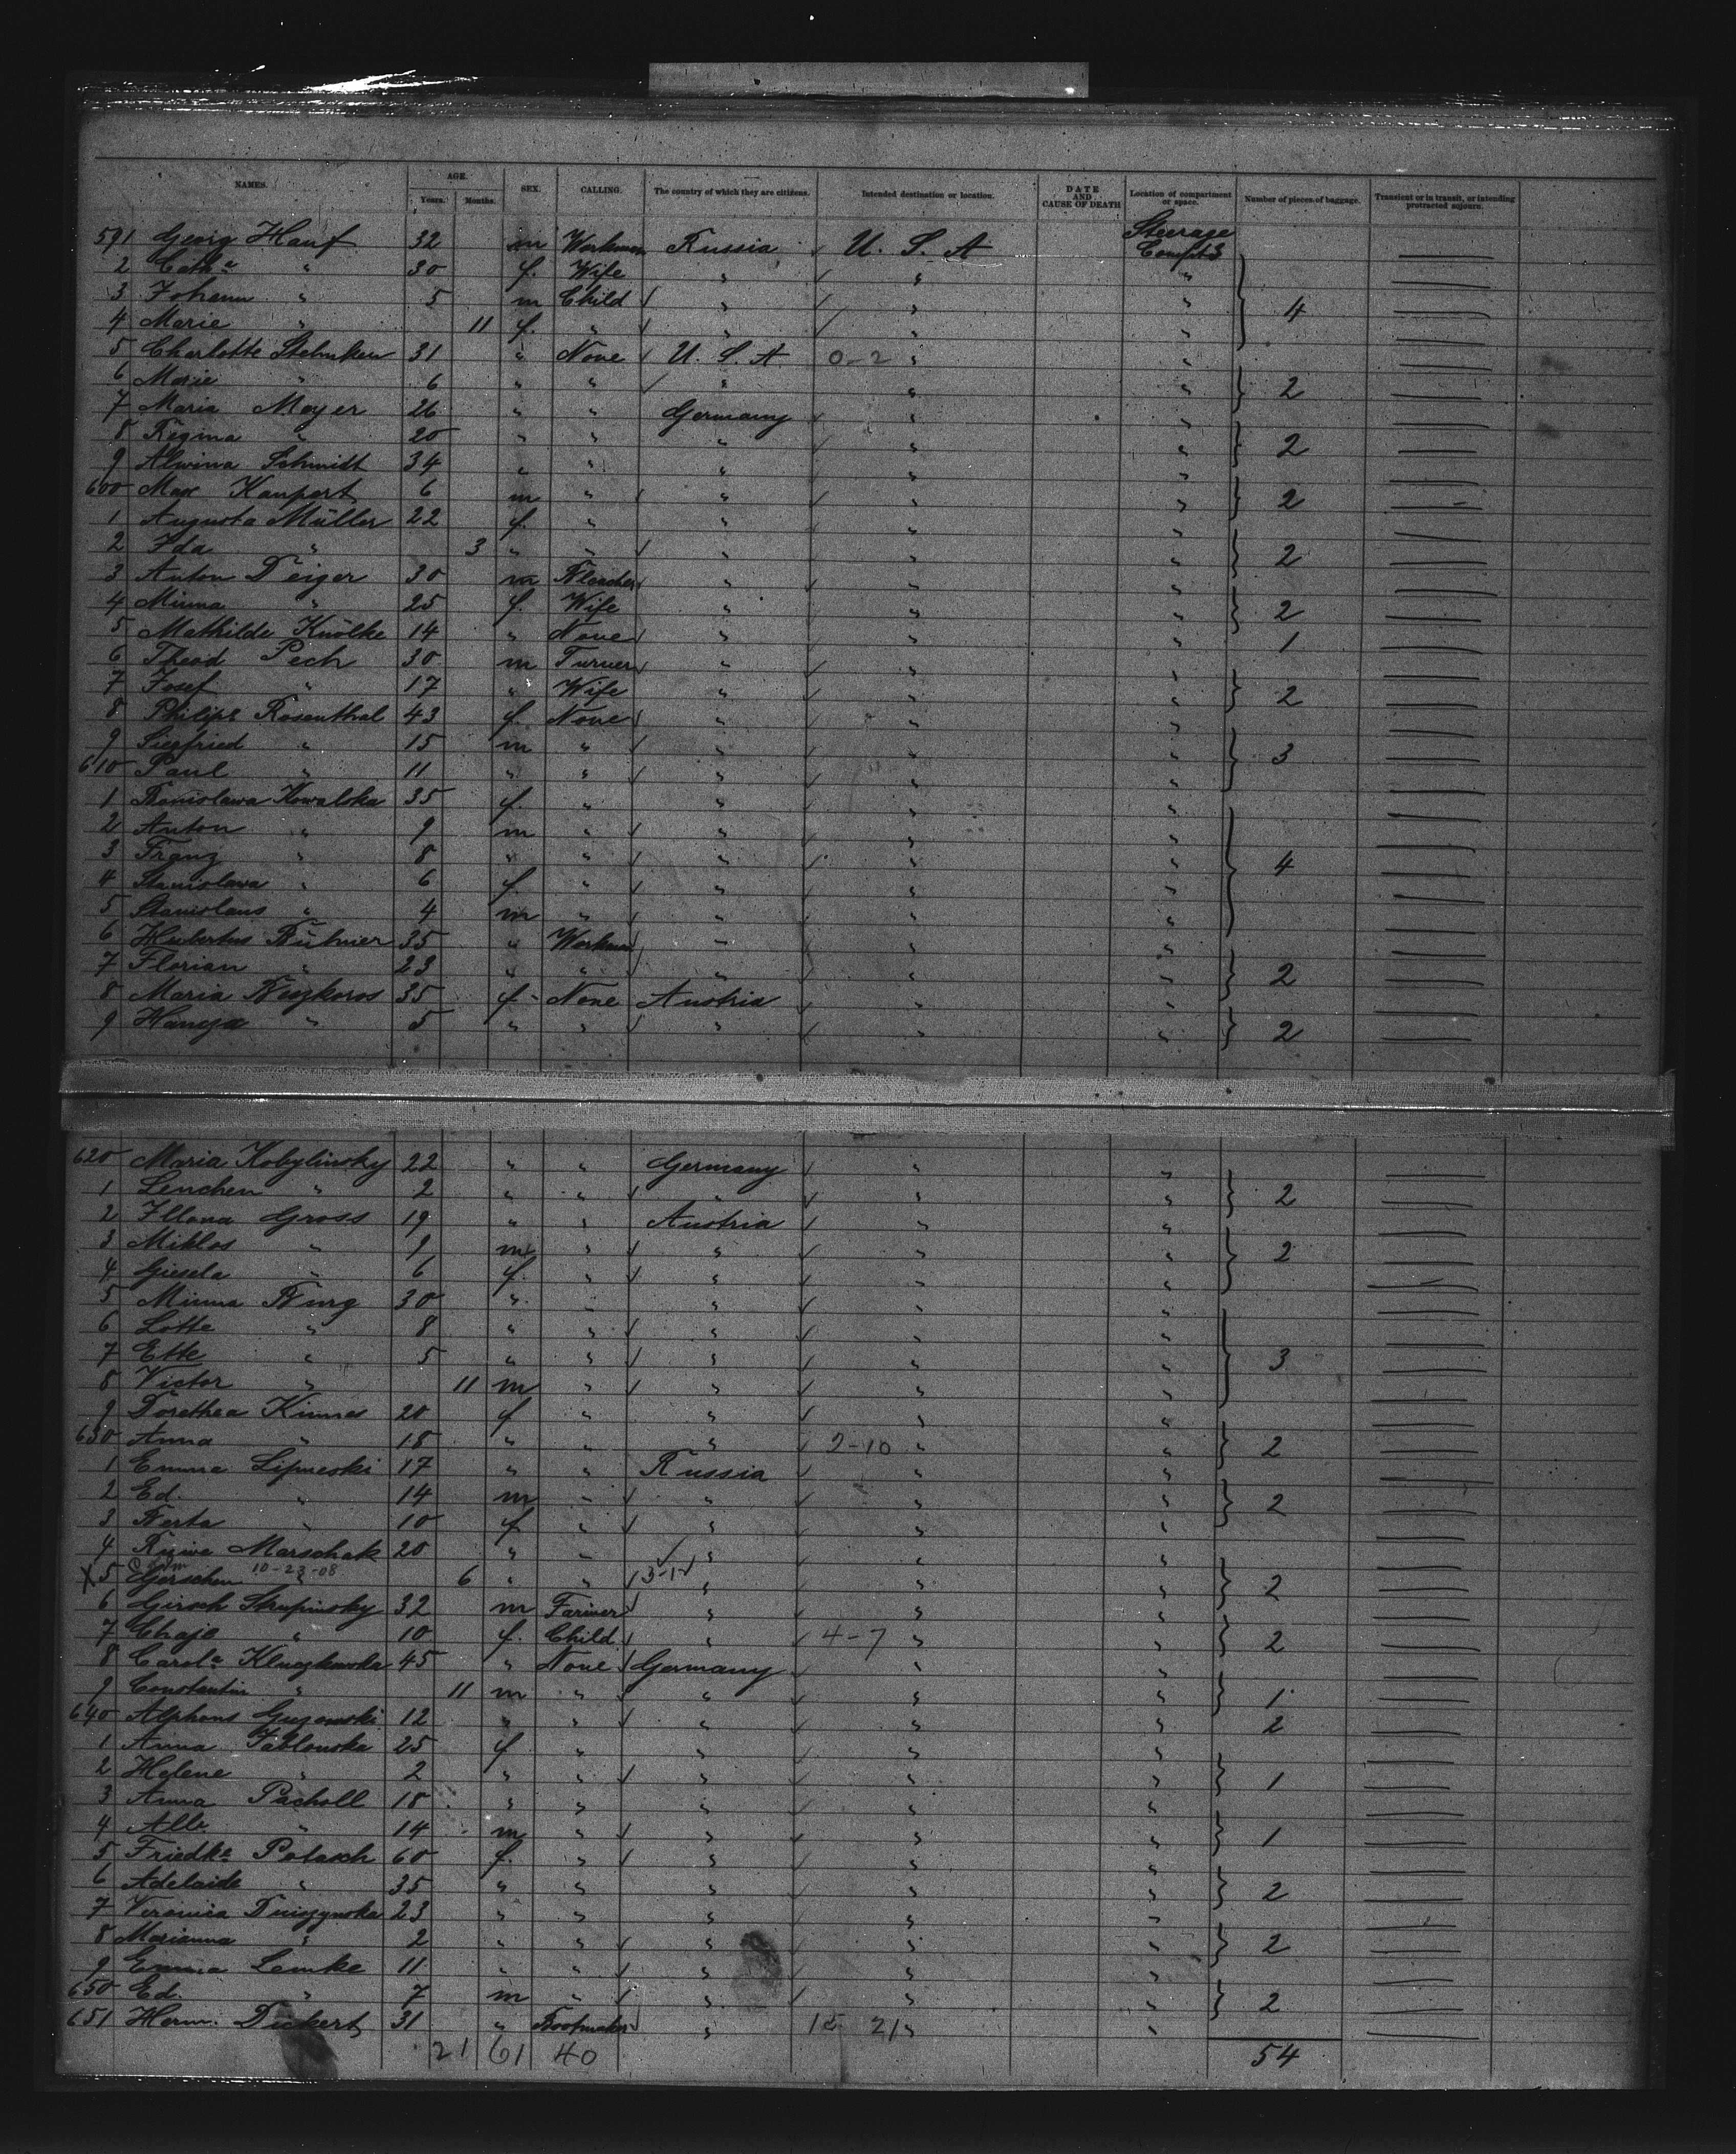 NAMES. AGE. SEX. CALLING. The country of which they are citizens. Intended destination or location. DATE AND CAUSE OF DEATH Location of compartment or space. Number of pieces of baggage. Transient or in transit, or intending protracted sojourn.
Years. Months.
591 Georg Hauf 32 m Workman Russia U. S. A Steerage Compt 3
2 Cath a " 30 f. Wife " " "
3 Johann " 5 m Child " " " 4
4 Marie " 11 f. " " " "
5 Charlotte Stelnken 31 " None U. S. A 0-2 " "
6 Marie " 6 " " " " " 2
7 Maria Mayer 26 " " Germany " "
8 Regina " 20 " " " " " 2
9 Alwina Schmidt 34 " " " " "
600 Max Kaupert 6 m " " " " 2
1 Augusta Müller 22 f. " " " "
2 Ida " 3 " " " " " 2
3 Anton Deiger 30 m " " "
4 Minna " 25 f. Wife " " " 2
5 Mathilde Knölke 14 " None " " " 1
6 Theod Pech 30 m Turner " " "
7 Josef " 17 " Wife " " " 2
8 Philipp Rosenthal 43 f. None " " "
9 Siegfried " 15 m " " " " 3
610 Paul " 11 " " " " "
1 Kowalska 35 f. " " " "
2 Anton " 9 m " " " "
3 Franz " 8 " " " " " 4
4 Stanislawa " 6 f " " " "
5 Stanislaus " 4 m " " " "
6 Hubertus 35 " Workman " " "
7 Florian " 23 " " " " " 2
8 Maria 35 f - None Austria " "
9 " 5 " " " " " 2
620 Maria Kobylinsky 22 " " Germany " "
1 Lenchen " 2 " " " " " 2
2 Illona Gross 19 " " Austria " "
3 Miklos " 9 m " " " " 2
4 Giesela " 6 f. " " " "
5 Minna Burg 30 " " " " "
6 Lotte " 8 " " " " "
7 Ette " 5 " " " " " 3
8 Victor " 11 m " " " "
9 Dorethea Kinnes 20 f " " " "
630 Anna " 18 " " " 2-10 " " 2
1 Emma Lipneski 17 " " Russia " "
2 Ed. " 14 m " " " " 2
3 Berta " 10 f " " " "
4 Marschak 20 " " " " "
X 5 Gerschen " 10-23-08 6 " " 3-1 " " " 2
6 Girsch Skupinsky 32 m Farmer " " "
7 Chaje " 10 f. Child " 4-7 " " 2
8 Carol a 45 " None Germany " "
9 Constantin " 11 m " " " " 1
640 Alphons 12 " " " " " 2
1 Anna Jablonska 25 f " " " "
2 Helene " 2 " " " " " 1
3 Anna Pacholl 18 " " " " "
4 Alb. " 14 m " " " " 1
5 Friedk a Potasch 60 f. " " " "
6 Adelaide " 35 " " " " " 2
7 Veronica 23 " " " " "
8 Marianna " 2 " " " " " 2
9 Emma Lemke 11 " " " " "
650 Ed. " 7 m " " " " 2
651 Herm. Dickert 31 " Bootmaker " 21 " "
21 61 40 54